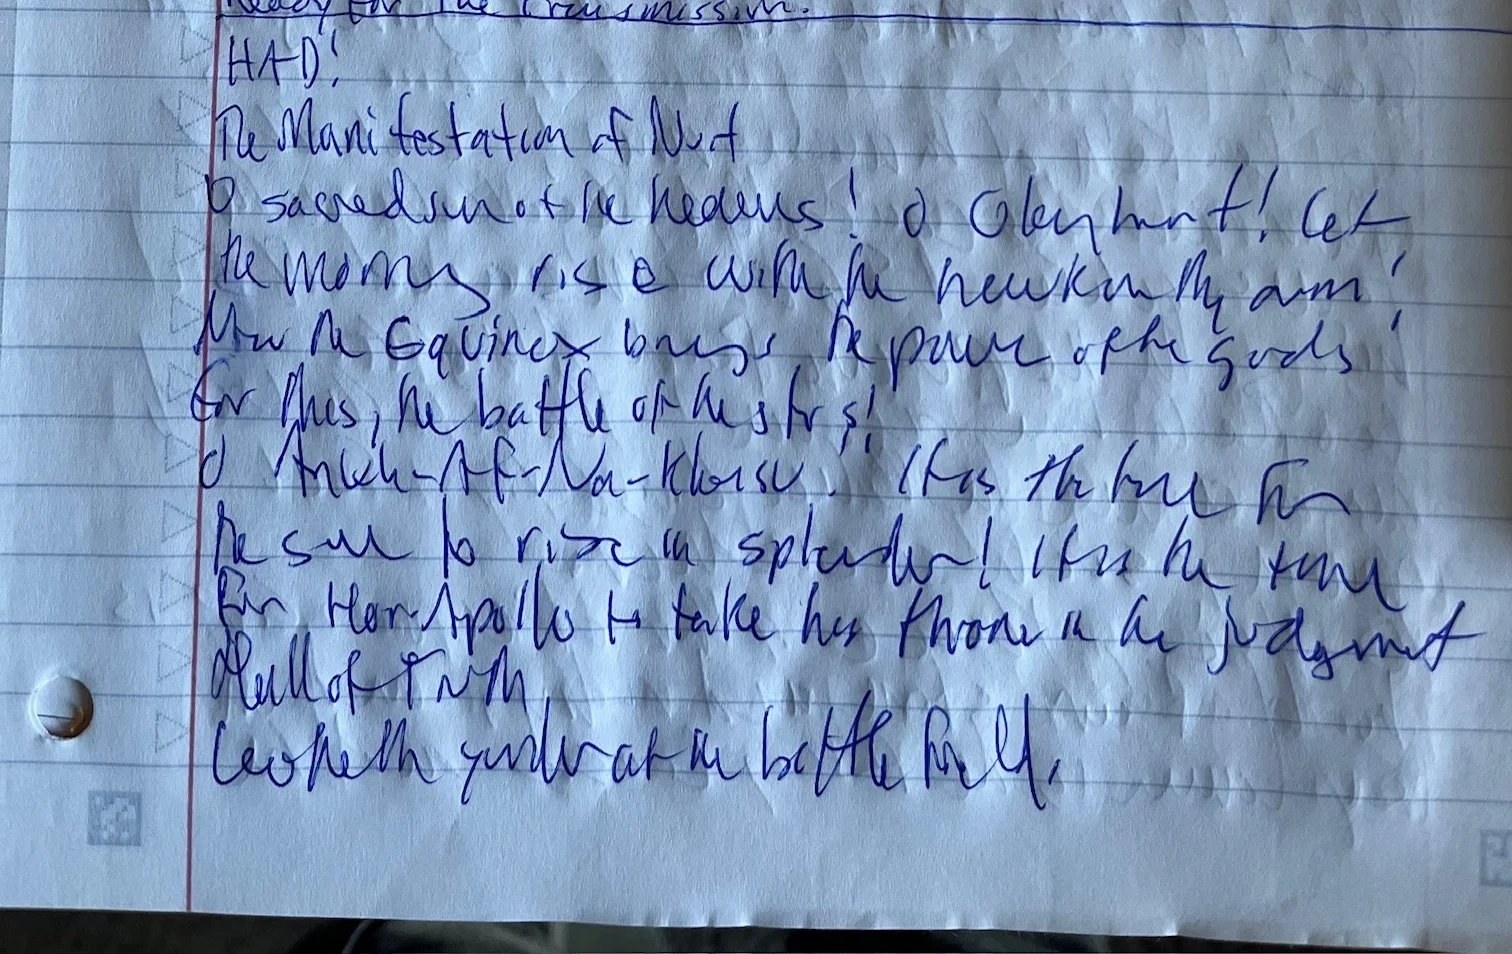 Ready for the transmission.
HAD!
The Manifestation of Nut
O sacred sun of the heavens! O Elephant! Let
the morning rise with the new kin thy arm!
Now the Equinox brings the power of the gods!
For this, the battle of the stars!
O Ankh-Af-Na-Khonsu! It is the time for
the sun to rise in splendor! It is the time
For Hor-Apollo to take his throne in the judgment
Hall of Truth
at the battle field.